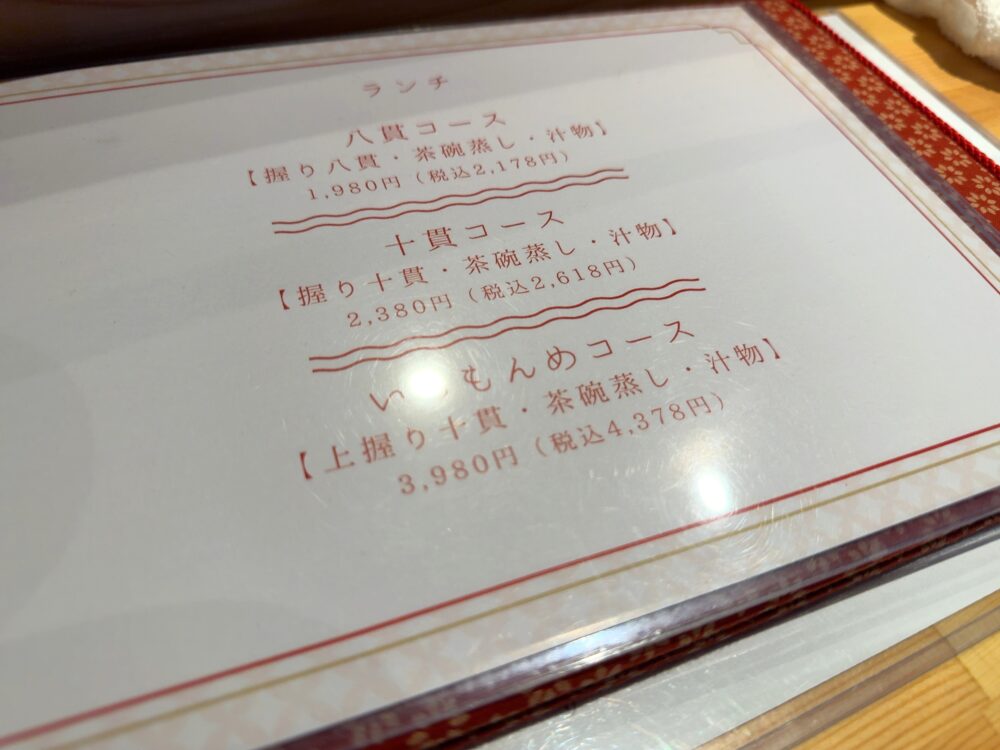 ランチ
八貫コース
【握り八貫・茶碗蒸し・汁物】
1,980円（税込2,178円）
十貫コース
【握り十貫・茶碗蒸し・汁物】
2,380円（税込2,618円）
もんめコース
【上握り十貫・茶碗蒸し・汁物】
3,980円（税込4,378円）